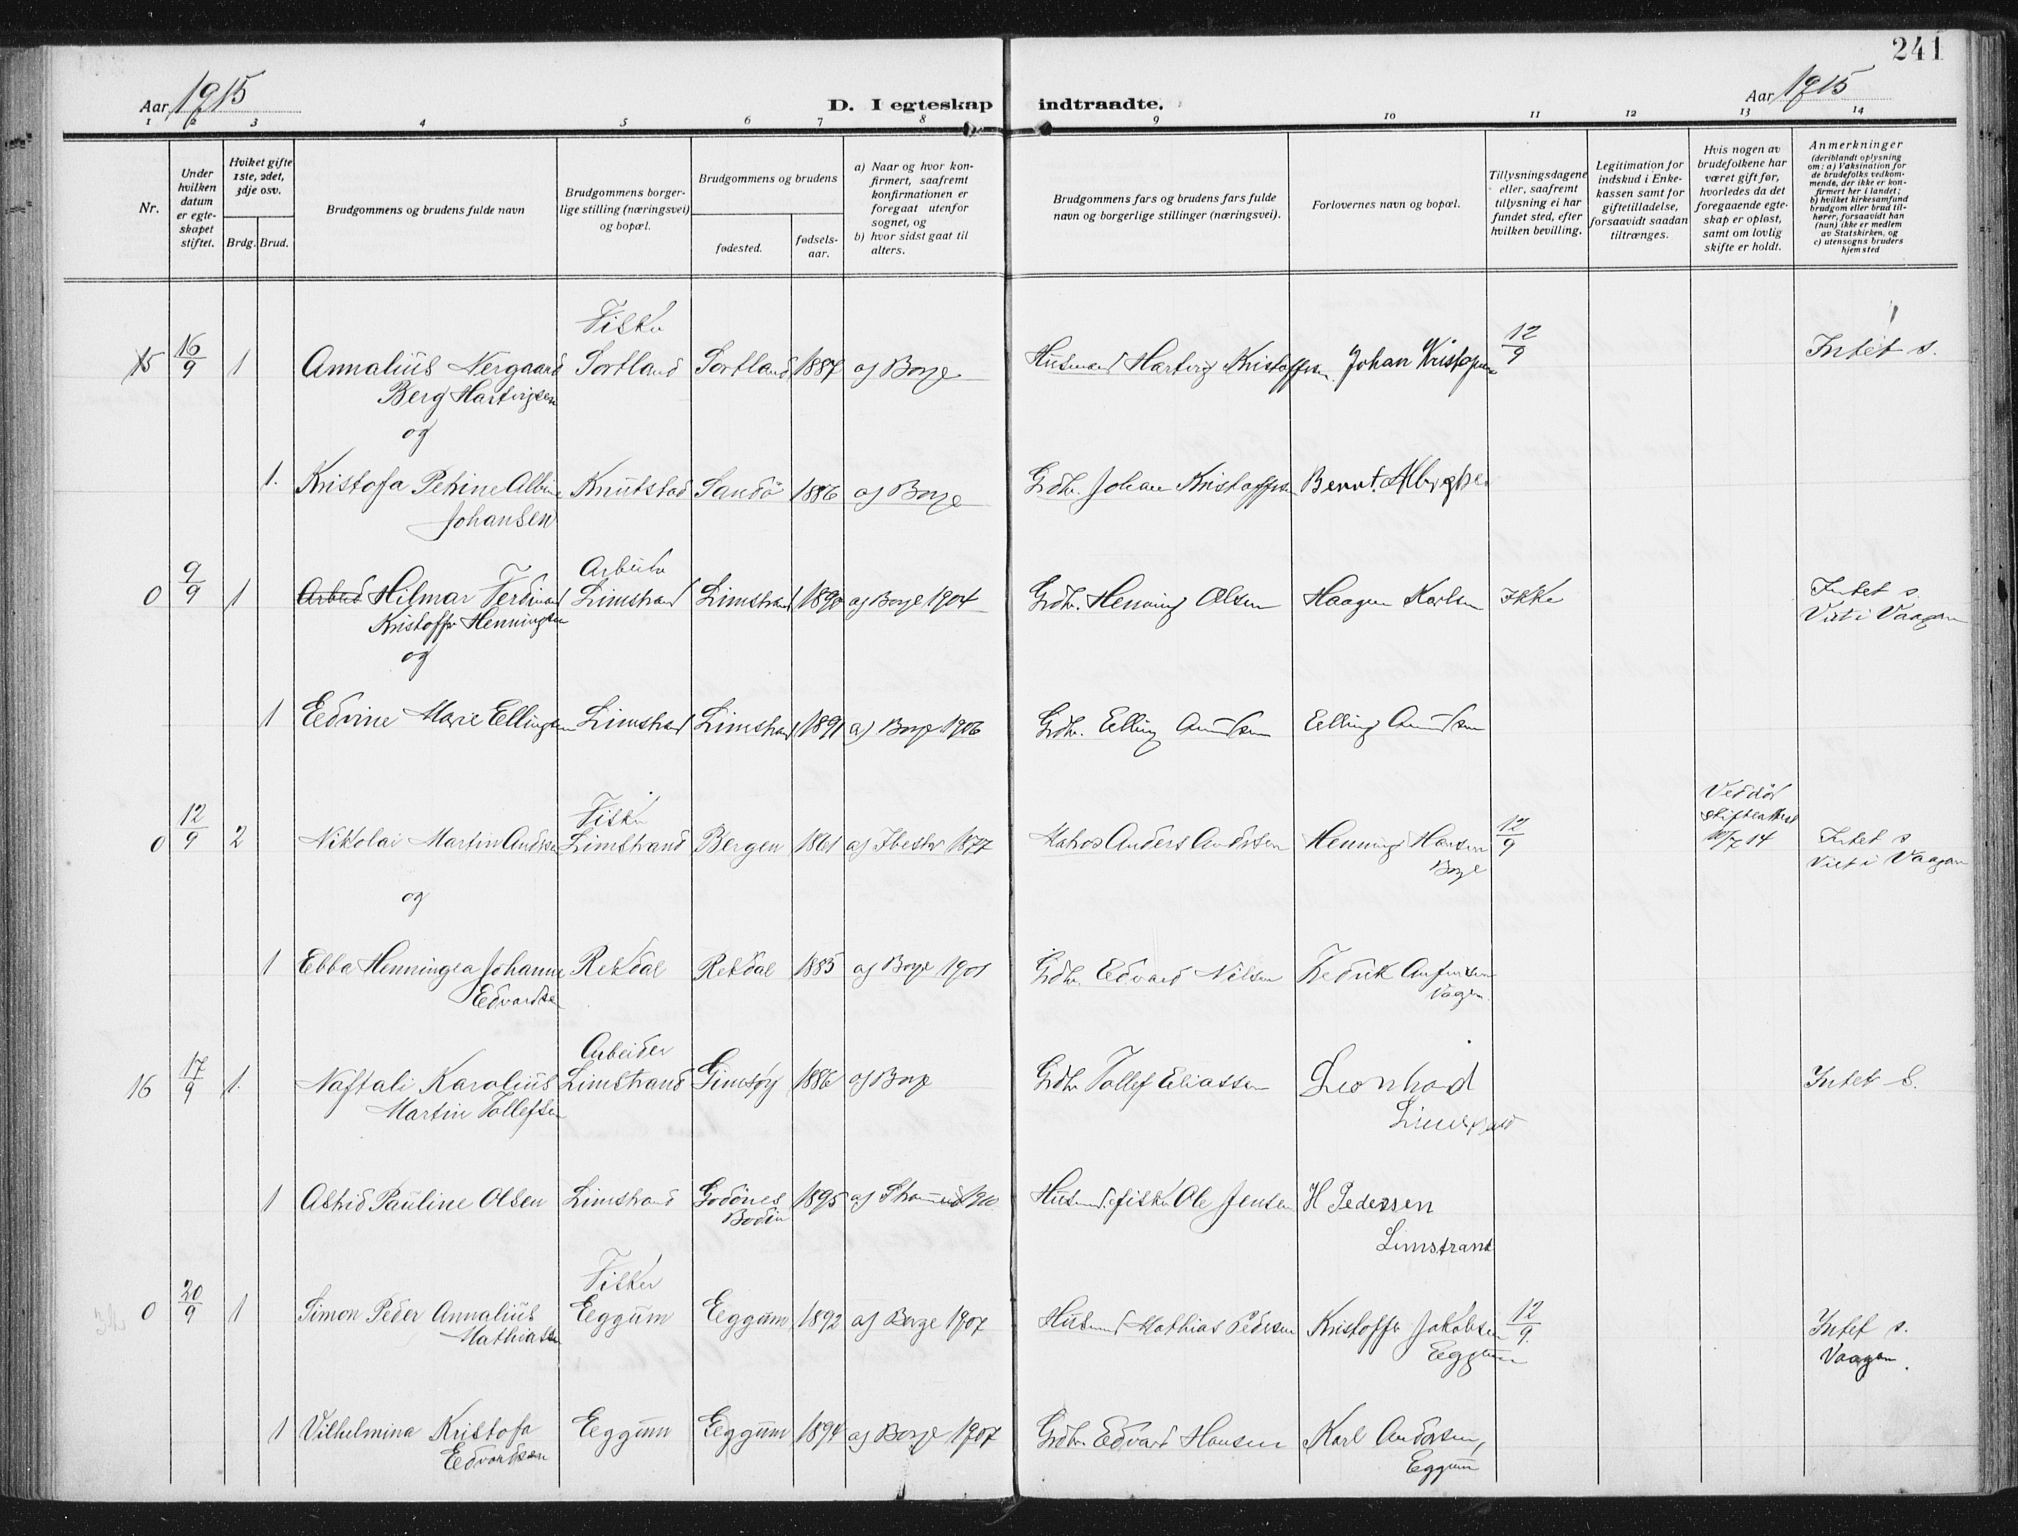 241
Aar 1915
D. I egteskap indtraadte.
Aar 1915
1 2 3 4 5 6 7 8 9 10 11 12 13 14
Nr.
Under hvilken datum er egteskapet stiftet.
Hviket gifte 1ste, 2det, 3dje osv.
Brdg. Brud.
Brudgommens og brudens fulde navn
Brudgommens borgerlige stilling (næringsvei) og bopæl.
Brudgommens og brudens
fødested.
fødselsaar.
a) Naar og hvor konfirmert, saafremt konfirmationen er foregaat utenfor sognet, og
b) hvor sidst gaat til alters.
Brudgommens fars og brudens fars fulde navn og borgerlige stillinger (næringsvei).
Forlovernes navn og bopæl.
Tillysningsdagene eller, saafremt tillysning ei har fundet sted, efter hvilken bevilling.
Legitimation for indskud i Enkekassen samt for giftetilladelse, forsaavidt saadan tiltrænges.
Hvis nogen av brudefolkene har været gift før, hvorledes da det foregaaende egteskap er opløst, samt om lovlig skifte er holdt.
Anmerkninger
(deriblandt oplysning om: a) Vaksination for de brudefolks vedkommende, der ikke er konfirmert her i landet; b) hvilket kirkesamfund brudgom eller brud tilhører, forsaavidt han (hun) ikke er medlem av Statskirken, og c) utensogns bruders hjemsted
Fisker
15 16/9 1 Annaliüs Nergaard Sortland Sortland 1887 a) Borge Husmand Hartvig Kristoffersen Johan Kristoffersen 12/9 Intet s.
Berg Hartvigsen
og
1. Kristofa Petrine Albine Knutstad Sandö 1886 a) Borge Grdbr. Johan Kristoffersen Bernt
Johansen
Arbeider
0 9/9 1 Hilmar Ferdinand Limstrand Limstrand 1890 a) Borge 1904 Grdbr. Henning Olsen Haagen Karlsen Ikke Intet s.
Kristoffer Henningsen Viet i Vaagan
og
1 Edvine Marie Ellingsen Limstrand Limstrand 1891 a) Borge 1906 Grdbr. Elling Amundsen Elling Amundsen
Fisker
Ved död skifteattest 10/7 14
0 12/9 2 Nikolai Martin Andersen Limstrand Bergen 1861 a) Ibestad 1877 Matros Anders Andersen Henning Hansen 12/9 Intet s
Borge Viet i Vaagan
og
1 Ebba Henningea Johanne Rekdal Rekdal 1885 a) Borge 1901 Grdbr. Edvard Nilsen Fredrik Anfinsen
Edvardsen Vagan
Arbeider
16 17/9 1. Naftali Karoliüs Limstrand Gimsøy 1886 a) Borge Grdbr Tollef Eliassen Leonhard Intet s.
Martin Tollefsen Limstrand
1 Astrid Pauline Olsen Limstrand Godönes 1895 a) 1910 Husmd. fisker Ole Jensen H Pederssen
Bodin Limstrand
Fisker
0 20/9 1 Simon Peder Annaliüs Eggum Eggum 1892 a) Borge 1907 Husmd Mathias Pedersen Kristoffer Jakobsen 12/9. Intet s.
Mathiassen Eggum Vaagan.
1 Vilhelmina Kristofa Eggum Eggum 1894 a) Borge 1907 Grdbr Edvard Hansen Karl Andersen,
Edvardsen Eggum